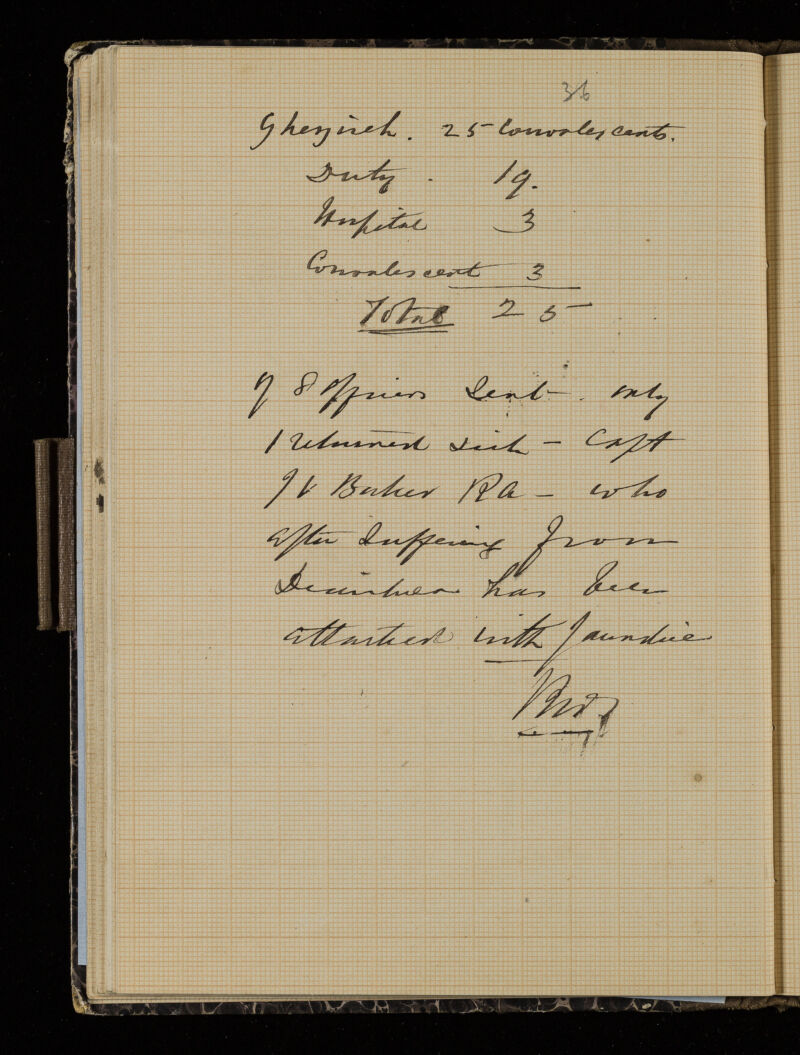 36
Gherzireh. 25 Convalescents.
Duty. 19.
Hospital 3
Convalescent 3
Total 25
Of 8 Officers Sent. only
1 returned sick - Capt
Barker RA - who
after suffering from
has been
attacked with Jaundice